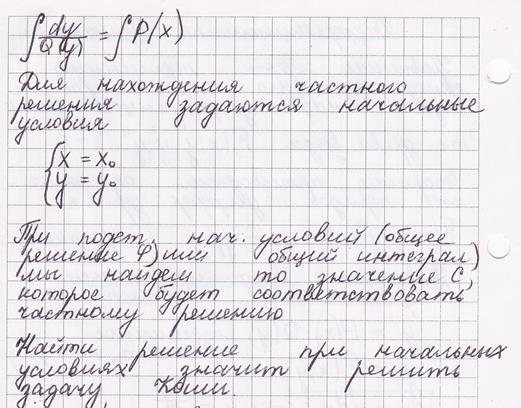 ∫ dy/Q(y) = ∫ P(x)
Для нахождения частного
решения задаются начальные
условия
{ x = x₀
y = y₀
При подст. нач. условий (общее
решение Ф) или общий интеграл)
мы найдем то значение C,
которое будет соответствовать
частному решению
Найти решение при начальных
условиях значит решить
задачу Коши.